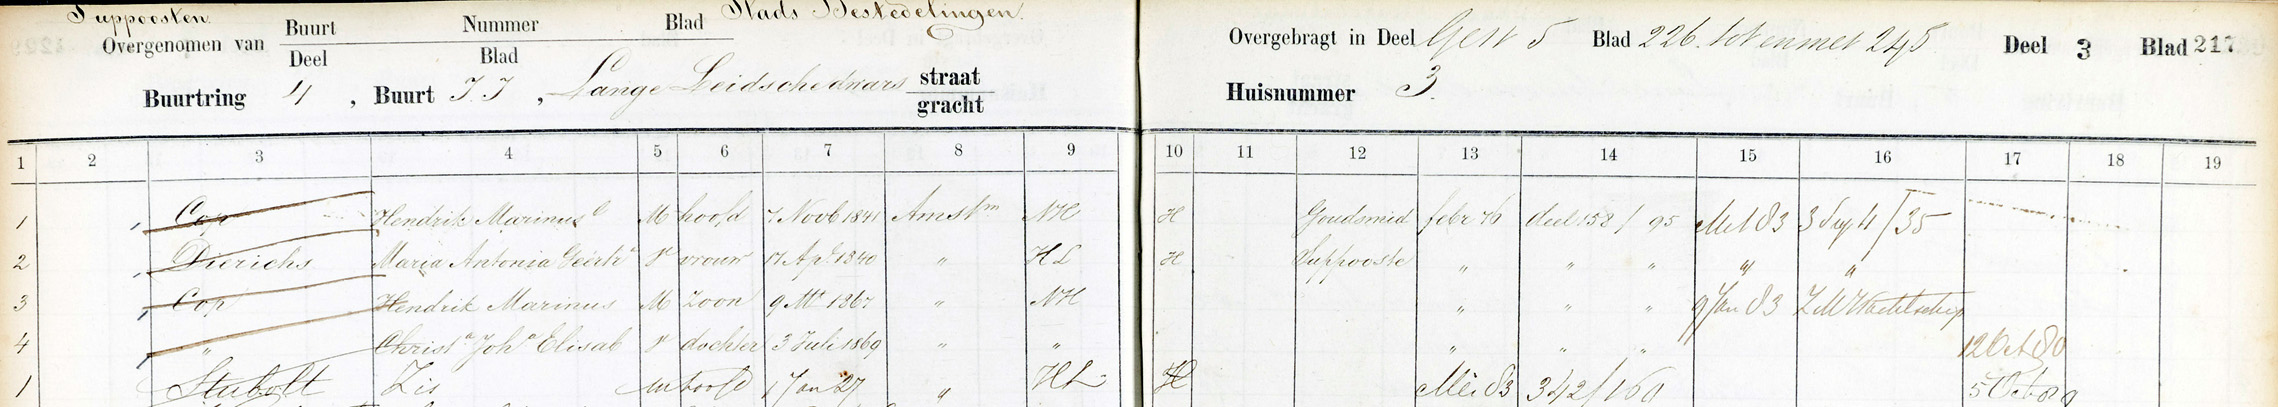 Suppoosten. Stads Bestedelingen.
Overgenomen van Buurt Nummer Blad
Deel Blad
Overgebragt in Deel Gest 5 Blad 226 tot en met 245 Deel 3 Blad 217
Buurtring 4, Buurt JJ, Lange Leidschedwars straat
gracht
Huisnummer 3.
1 2 3 4 5 6 7 8 9 10 11 12 13 14 15 16 17 18 19
1 Cop Hendrik Marinus M hoofd 7 Novb 1841 Amstm NH H Goudsmid febr 76 deel 158 / 95 Met 83 4 / 35
2 Dierichs Maria Antonia Geertr V vrouw 17 Apl 1840 " HL H Suppooste " " " " "
3 Cop Hendrik Marinus M zoon 9 Mt 1867 " NH " " " 9 Jan 83 ZM Wachtschip
4 " Christa Joha Elisab V dochter 3 Juli 1869 " " " " " 12 Oct 80
1 Stubolt Zis M hoofd 1 Jan 27 " HL H Mei 83 342/160 5 Oct